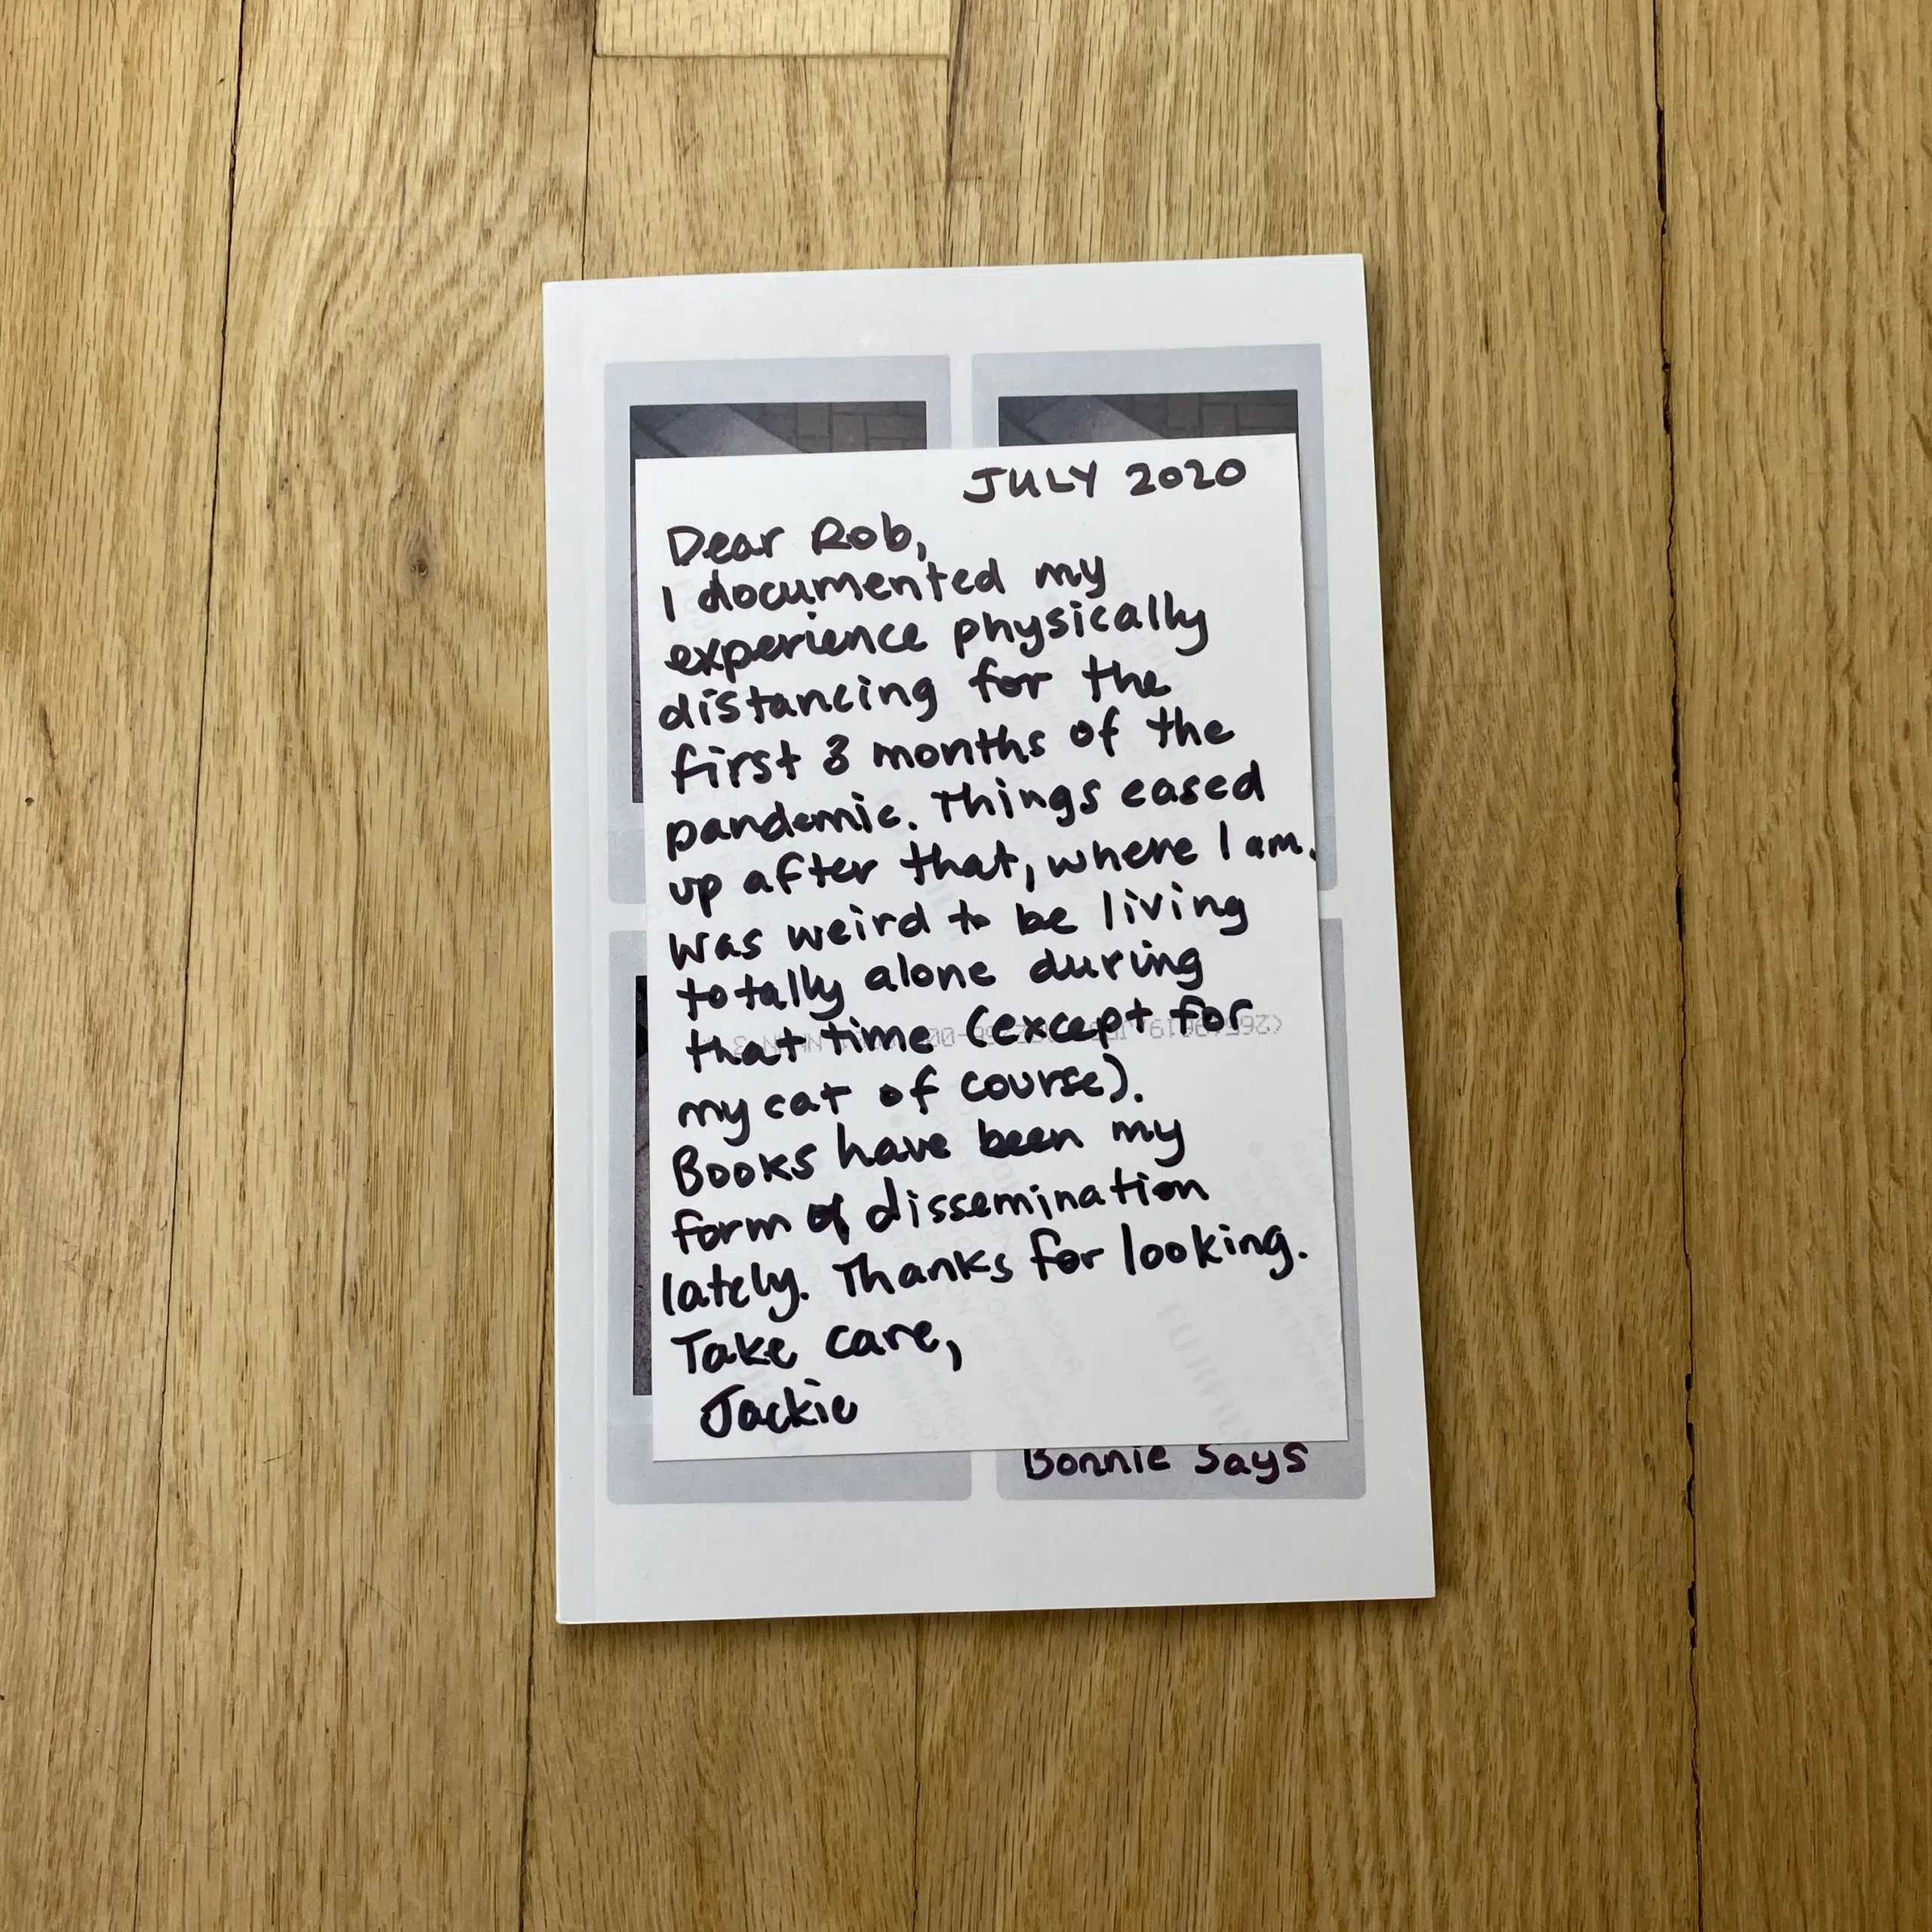 JULY 2020
Dear Rob,
I documented my
experience physically
distancing for the
first 3 months of the
pandemic. Things eased
up after that, where I am.
Was weird to be living
totally alone during
that time (except for
my cat of course).
Books have been my
form of dissemination
lately. Thanks for looking.
Take care,
Jackie
Bonnie Says